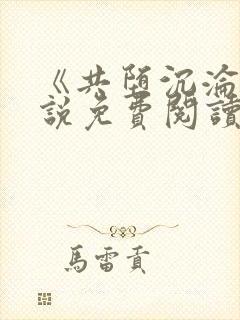 《共堕沉淪
說免費閱讀
馬雷貢